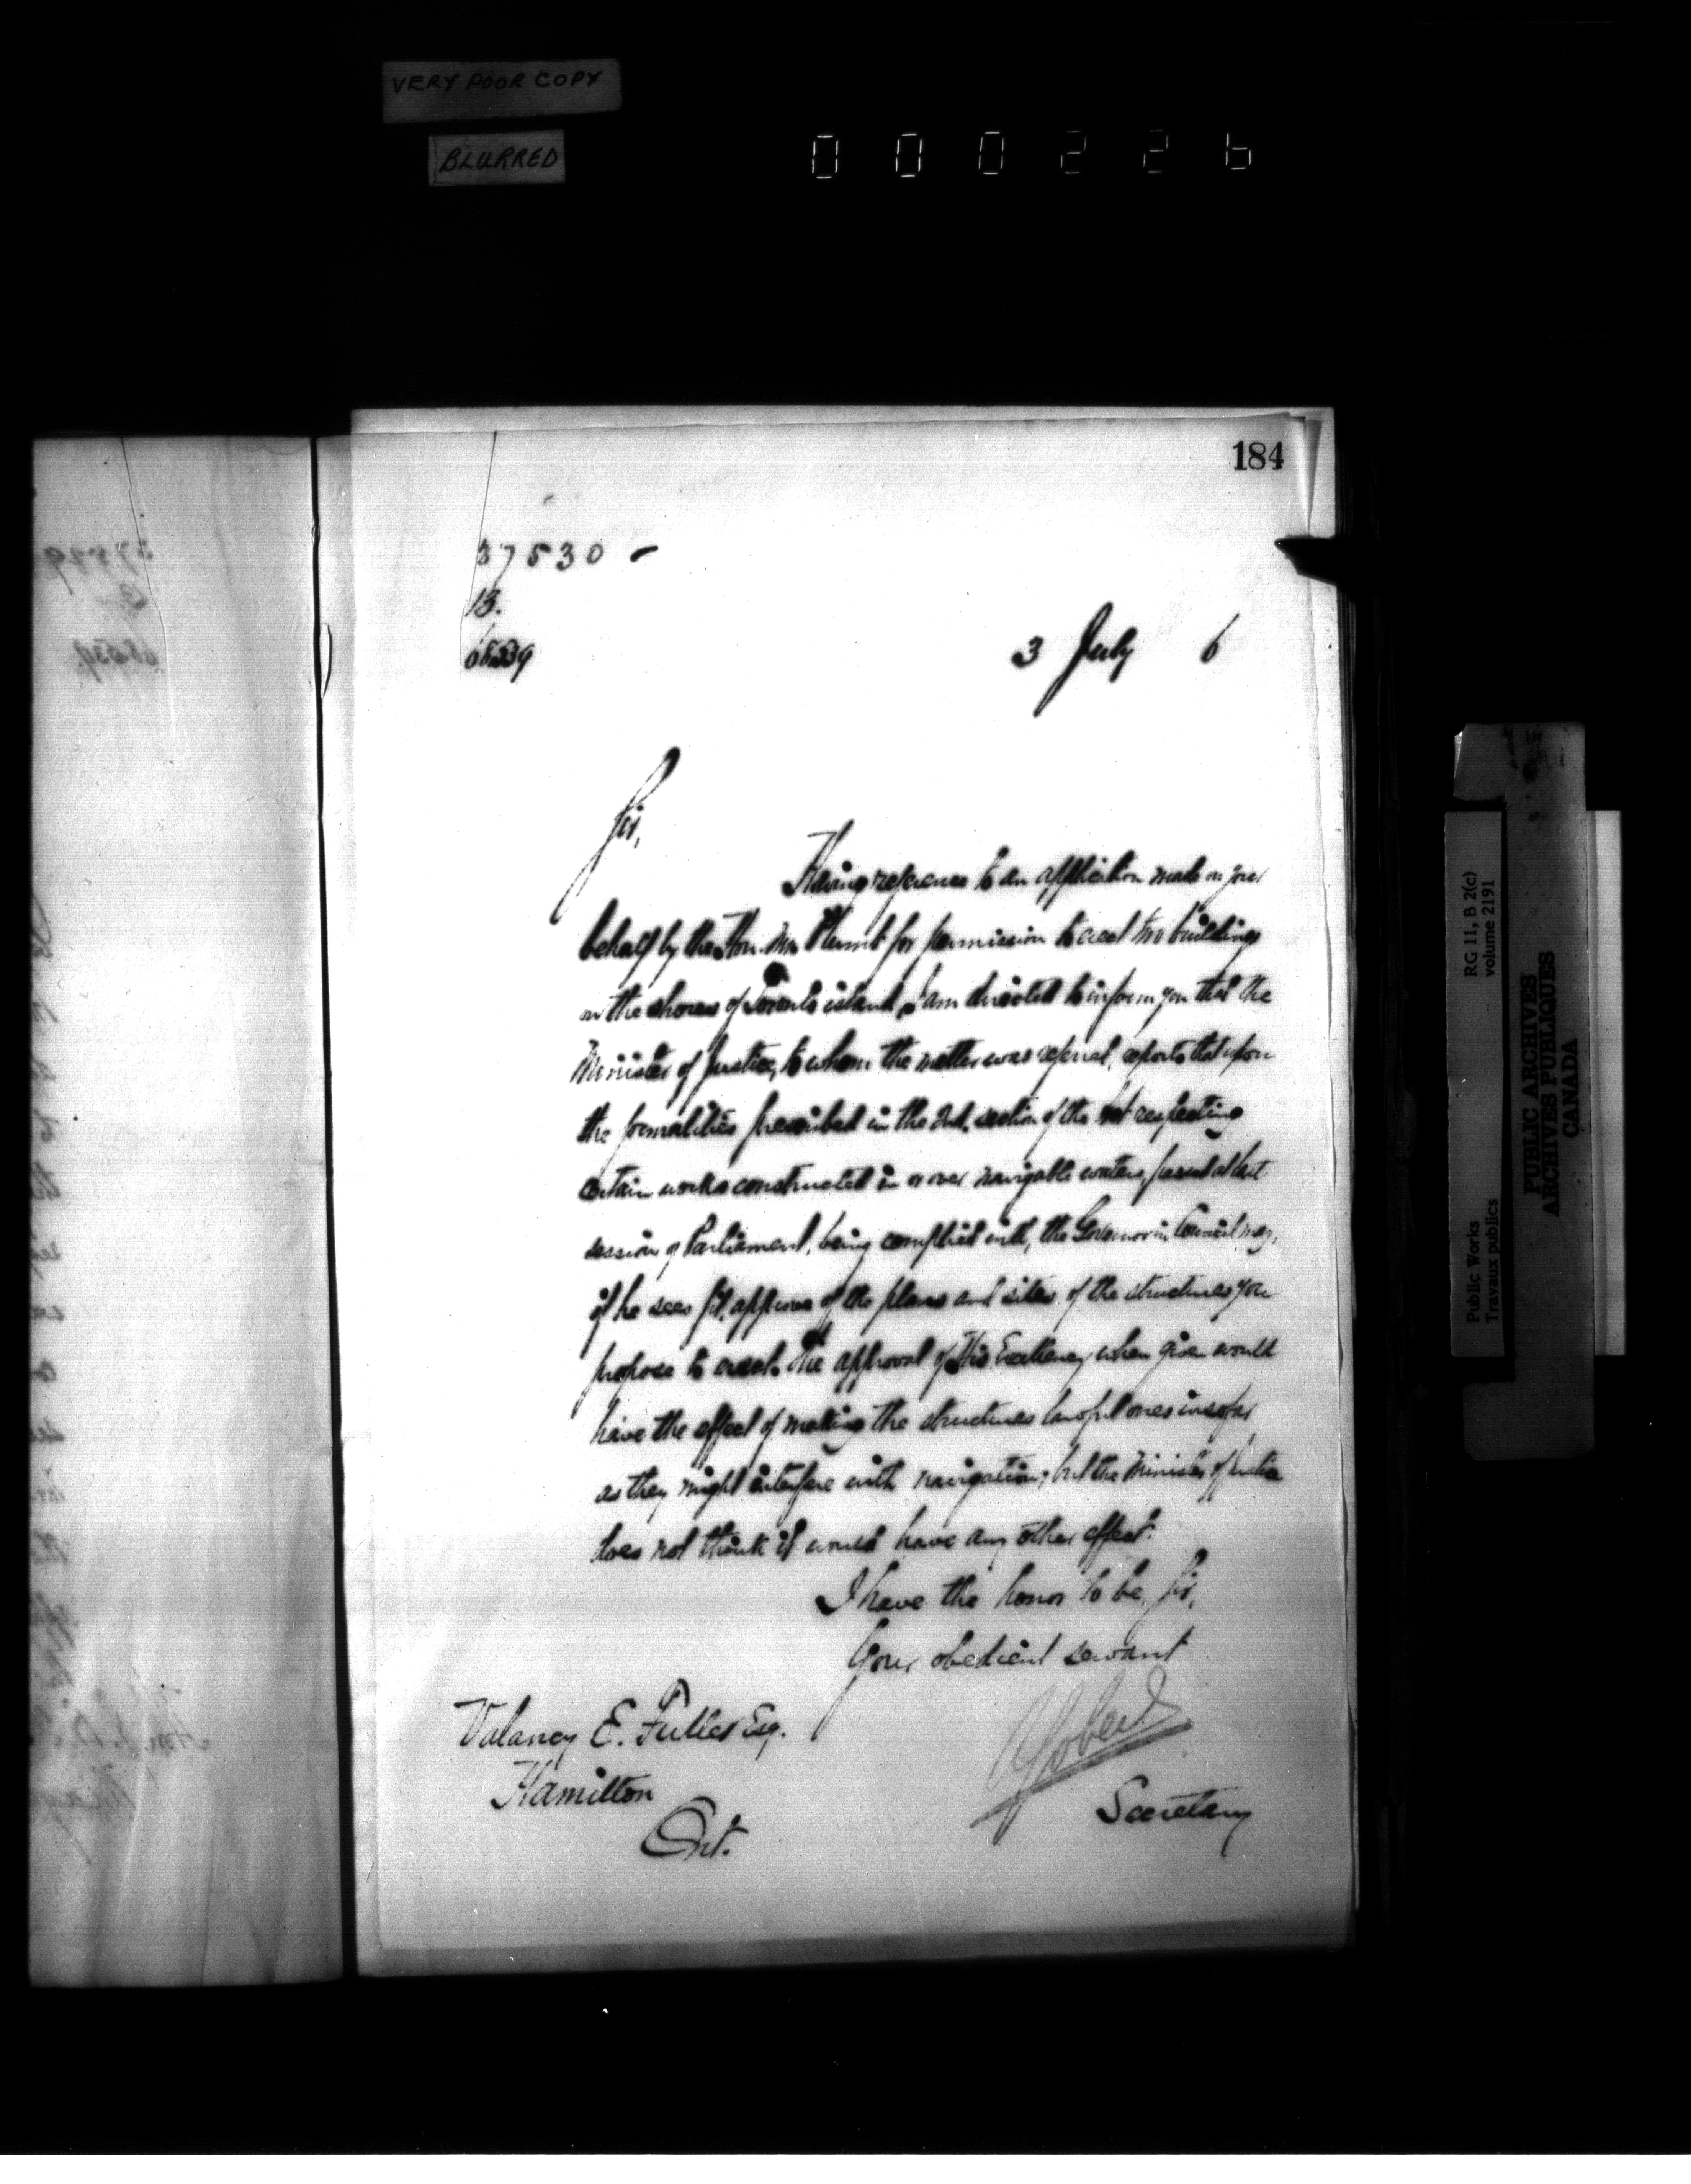 VERY POOR COPY
BLURRED
000226
184
37530 -
13.
3 July 6
Sir,
Having reference to an application made on your
behalf by the Hon. Mr. Plumb for permission to erect two buildings
on the shores of Toronto island, I am directed to inform you that the
Minister of Justice, to whom the matter was referred, reports that upon
the formalities prescribed in the 2nd. section of the Act respecting
certain works constructed in or over navigable waters, passed at last
session of Parliament, being complied with, the Governor in Council may,
if he sees fit, approve of the plans and sites of the structures you
propose to erect. The approval of His Excellency when given would
have the effect of making the structures lawful ones insofar
as they might interfere with navigation; but the Minister of Justice
does not think it would have any other effect.
I have the honor to be, Sir,
Your obedient servant
Valancy E. Fuller Esq.
Hamilton
Ont.
Gobeil
Secretary
RG 11, B 2(c)
volume 2191
Public Works
Travaux publics
PUBLIC ARCHIVES
ARCHIVES PUBLIQUES
CANADA